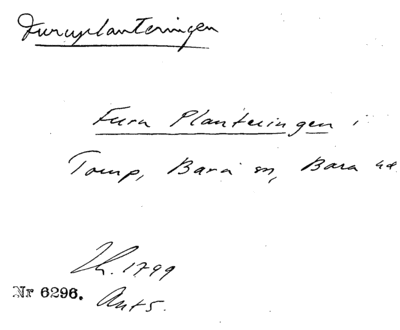 Furuplanteringen
Fura Planteringen i
Torup, Bara sn, Bara hd.
Th. 1799
Nr 6296. Ant 5.